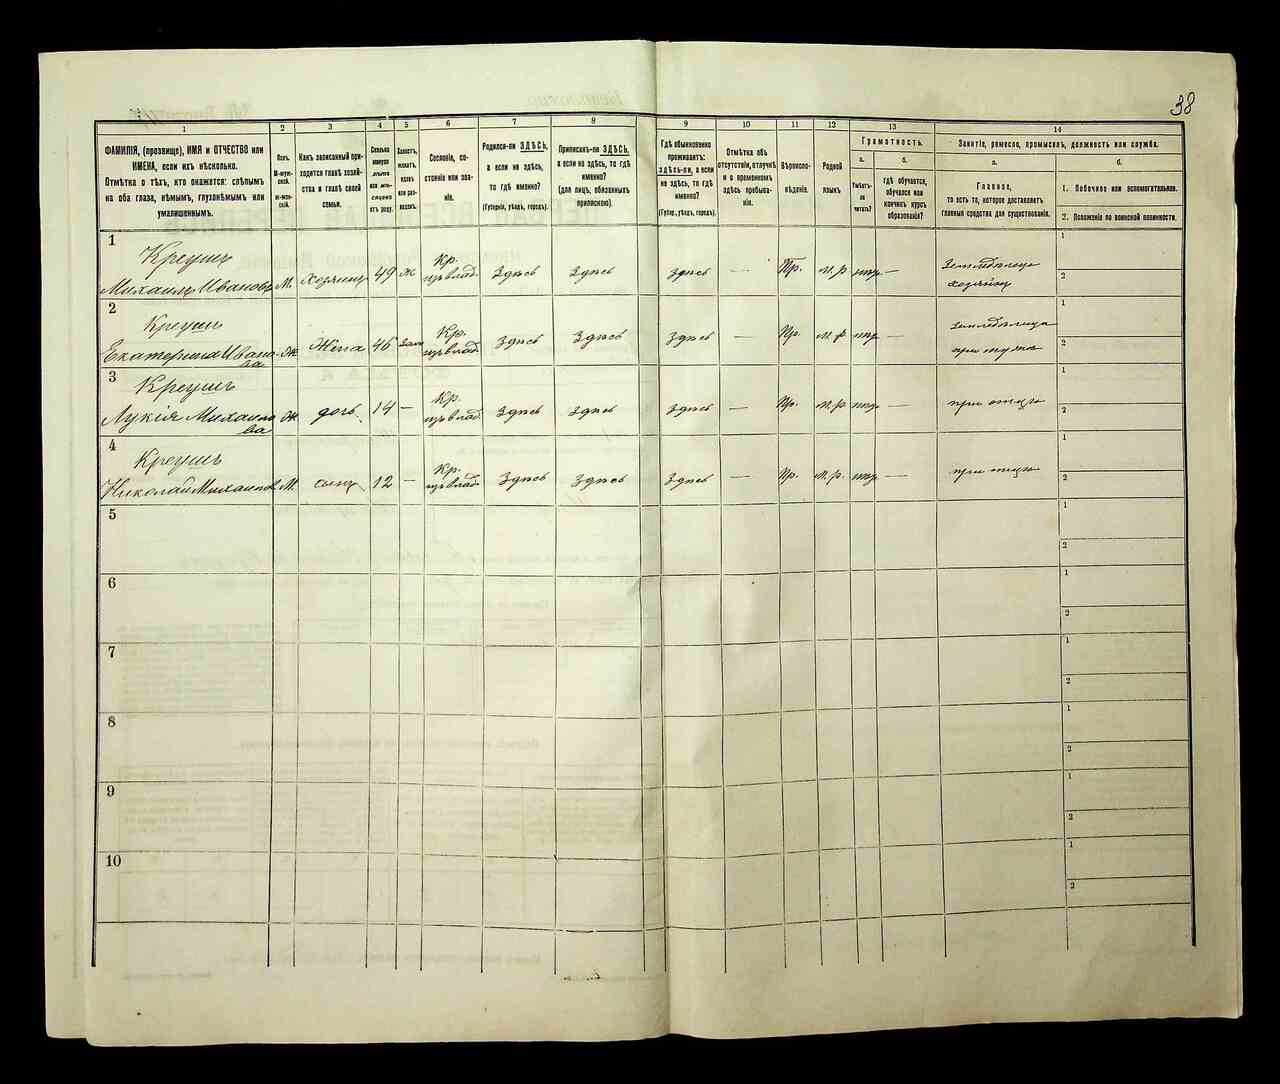 38
1
2
3
4
5
6
7
8
9
10
11
12
13
14
ФАМИЛІЯ, (прозвище), ИМЯ и ОТЧЕСТВО или
ИМЕНА, если ихъ нѣсколько.
Отмѣтка о тѣхъ, кто окажется: слѣпымъ
на оба глаза, нѣмымъ, глухонѣмымъ или
умалишеннымъ.
Полъ.
М-муж-
ской.
Ж-жен-
скій.
Какъ записанный при-
ходится главѣ хозяй-
ства и главѣ своей
семьи.
Сколько
минуло
лѣтъ
или мѣ-
сяцевъ
отъ роду.
Холостъ,
женатъ,
вдовъ
или раз-
веденъ.
Сословіе, со-
стояніе или зва-
ніе.
Родился-ли ЗДѢСЬ,
а если не здѣсь,
то гдѣ именно?
(Губернія, уѣздъ, городъ).
Приписанъ-ли ЗДѢСЬ,
а если не здѣсь, то гдѣ
именно?
(для лицъ, обязанныхъ
припискою).
Гдѣ обыкновенно
проживаетъ:
ЗДѢСЬ-ли, а если
не здѣсь, то гдѣ
именно?
(Губер., уѣздъ, городъ).
Отмѣтка объ
отсутствіи, отлучкѣ
и о временномъ
здѣсь пребыва-
ніи.
Вѣроиспо-
вѣданіе.
Родной
языкъ.
Грамотность.
а.
Умѣетъ-
ли
читать?
б.
гдѣ обучается,
обучался или
кончилъ курсъ
образованія?
Занятіе, ремесло, промыселъ, должность или служба.
а.
Главное,
то есть то, которое доставляетъ
главныя средства для существованія.
б.
1. Побочное или вспомогательное.
2. Положеніе по воинской повинности.
1
Креушъ
Михаилъ Ивановъ М. хозяинъ 49 ж Кр. изъ влад. Здѣсь Здѣсь Здѣсь — Пр. м.р нтъ — Земледѣлецъ
хозяинъ
1
2
2
Креушъ
Екатерина Ивано-
ва
Ж жена 46 зам Кр. изъ влад. Здѣсь Здѣсь Здѣсь — Пр. м.р нтъ —
при мужѣ
1
2
3
Креушъ
Лукія Михаило
ва
Ж дочь 14 — Кр. изъ влад. Здѣсь Здѣсь Здѣсь — Пр. м.р нтъ — при отцѣ
1
2
4
Креушъ
Николай Михаилов М. сынъ 12 — Кр. изъ влад. Здѣсь Здѣсь Здѣсь — Пр. м.р. нтъ — при отцѣ
1
2
5
1
2
6
1
2
7
1
2
8
1
2
9
1
2
10
1
2